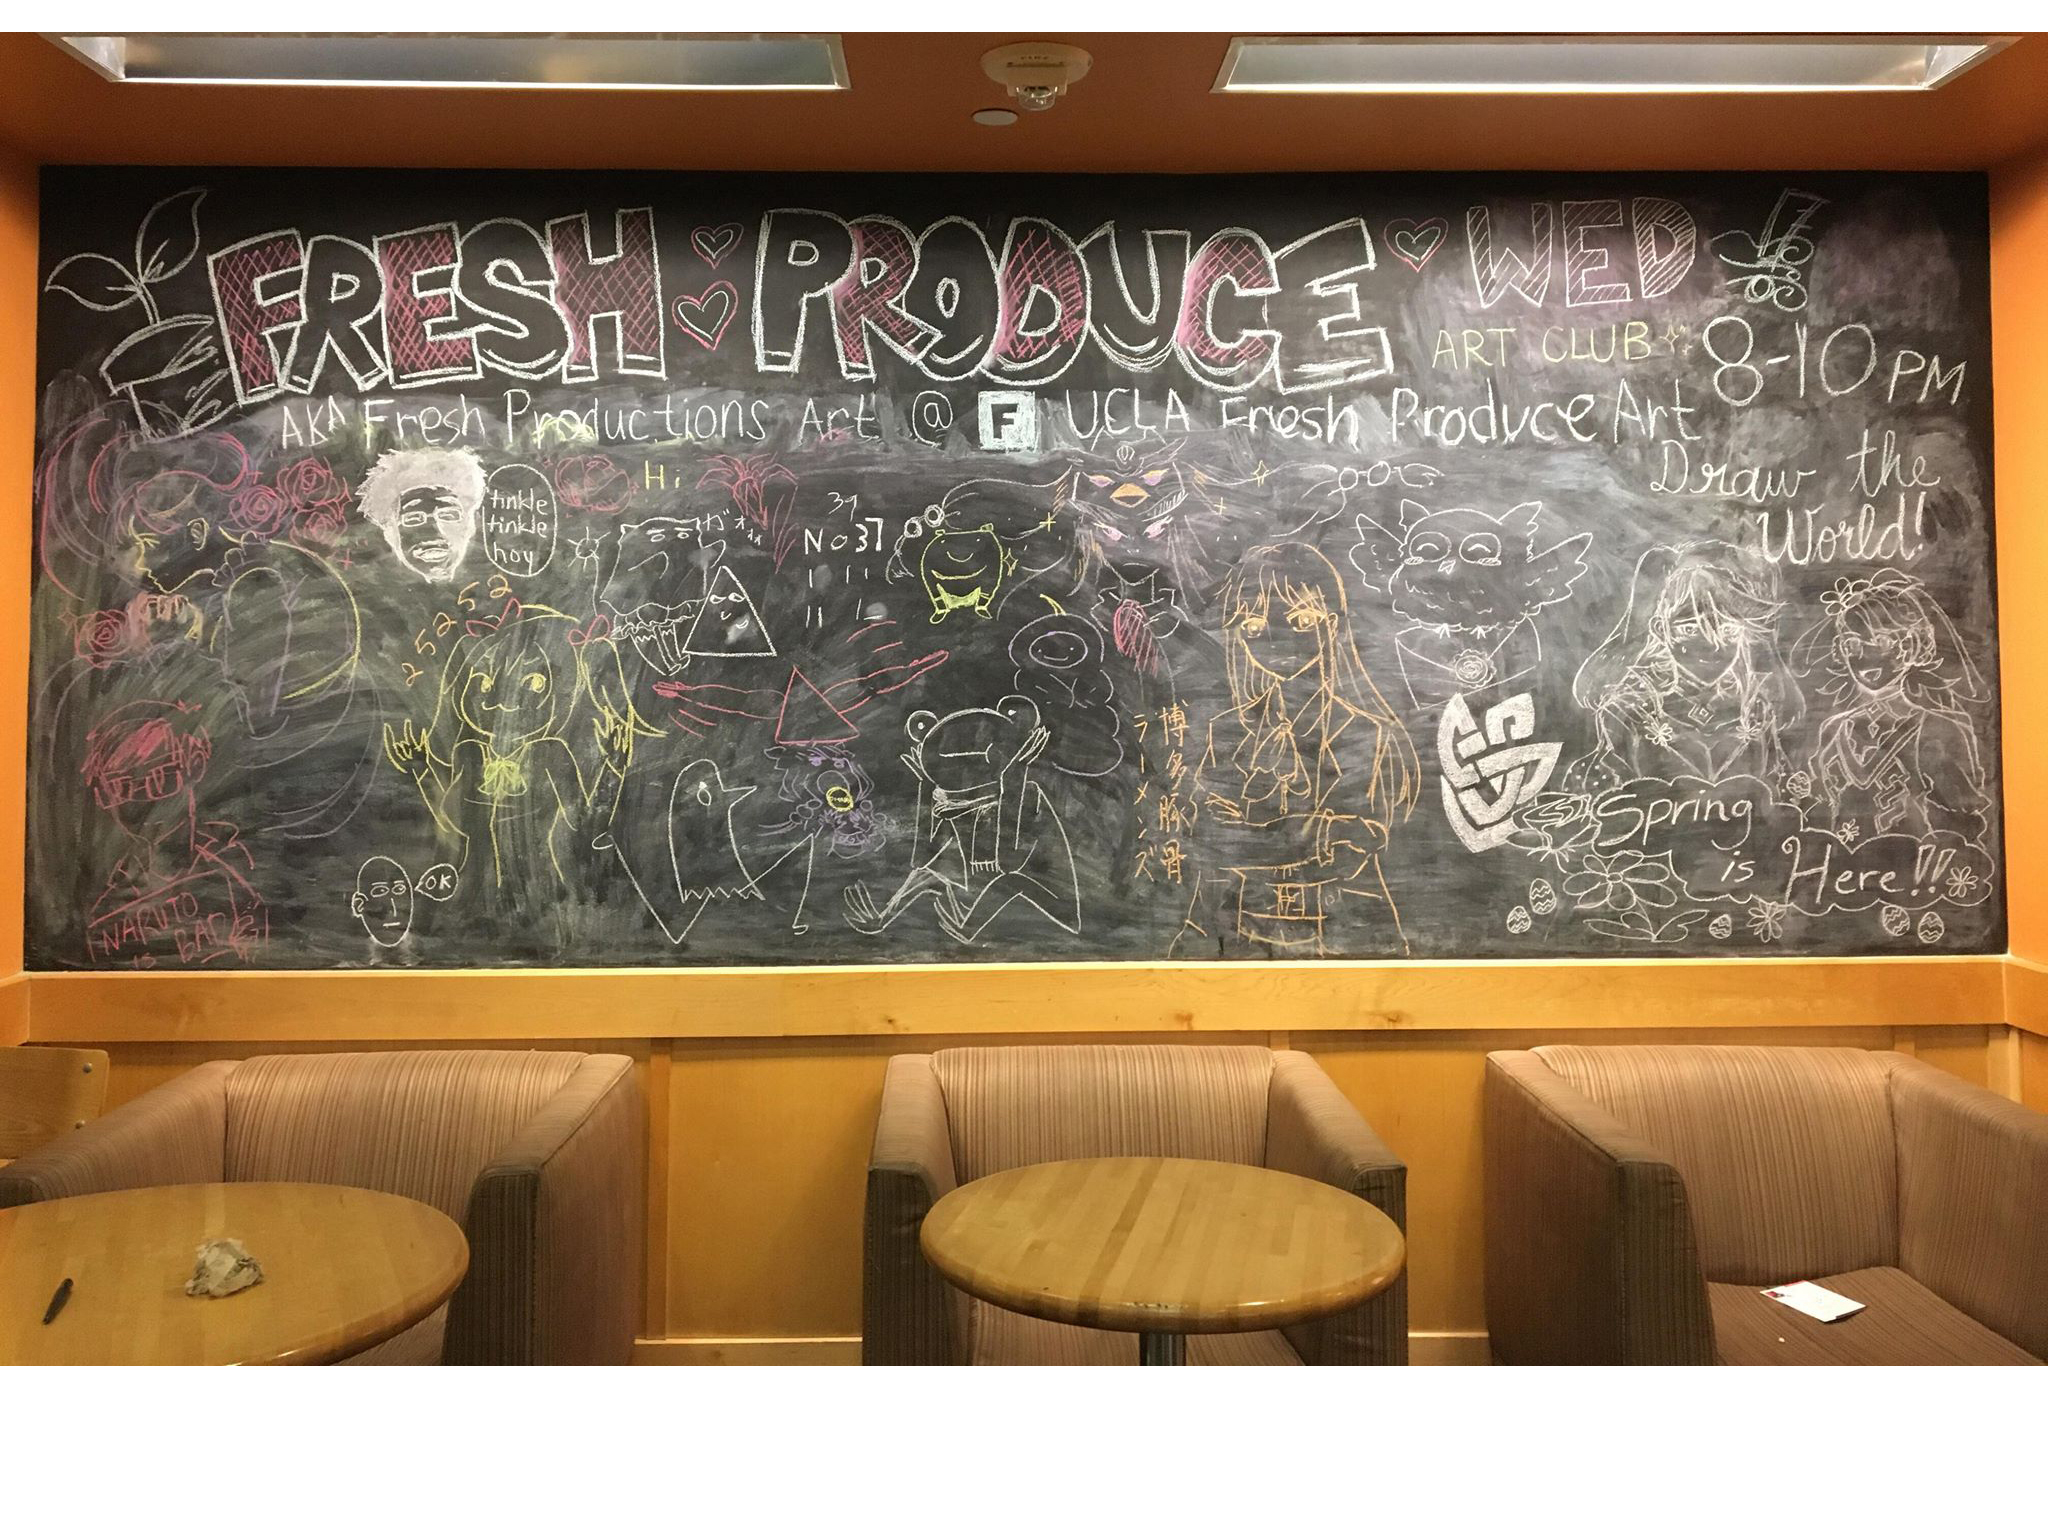 FRESH PRODUCE WED
ART CLUB 8-10 PM
AKA Fresh Productions Art @ F UCLA Fresh Produce Art
Draw the
World!
tinkle
tinkle
hoy
Hi
39
No 37
2525252
博多豚骨
ラーメンズ
OK
NARUTO
IS BAE
Spring
is Here!!